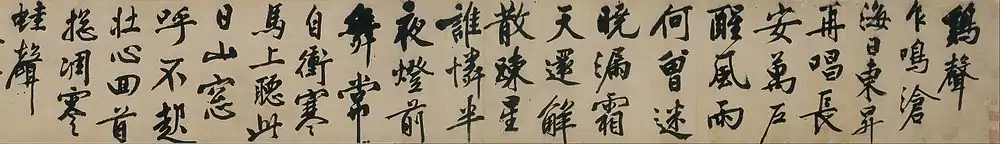 鷄聲
乍鳴滄
海日東昇
再唱長
安萬户
醒風雨
何曾迷
曉漏霜
天還解
散踈星
誰憐半
夜燈前
舞常
自衝寒
馬上聽此
日山窓
呼不起
壯心回首
揔凋零
蛙聲